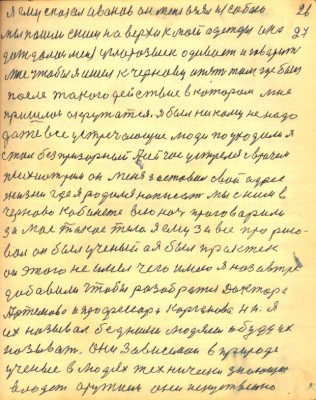 26
27
я ему сказал Иванов он меня взял и собою
мы пошли с ним на верх к моей одежды и на
меня одивает и говорит
мне чтобы я ишел к чернову опять там где был
после такого действие в котором мне
пришлось окрутатся. я был ни кому не надо
даже все устречающие люди подходила я
стал безпризорный
психиатром он меня заставил свой адрес
жизни где я родился написать мы с ним в
черново кабинете всю ноч проговарили
за мое такое тело я ему за все про рисо-
вал он был ученый а я был практик
он этого не имел чего имею я на завтра
добавили чтобы разобратся Доктора
Артемово и профессора Корганова н.н. я
их называл бедными людями и буду их
называт. Они зависимы в природе
ученые в людях технически
владат оружием они искуственно